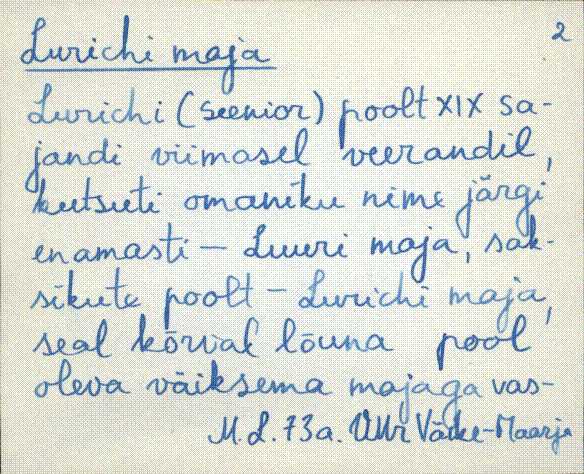 2
Lurichi maja
Lurichi (seenior) poolt XIX sa-
jandi viimasel veerandil,
kutsuti omaniku nime järgi
enamasti – Luuri maja, sak-
sikute poolt – Lurichi maja,
seal kõrval lõuna pool
oleva väiksema majaga vas-
M.L. 73a. VMr Väike-Maarja